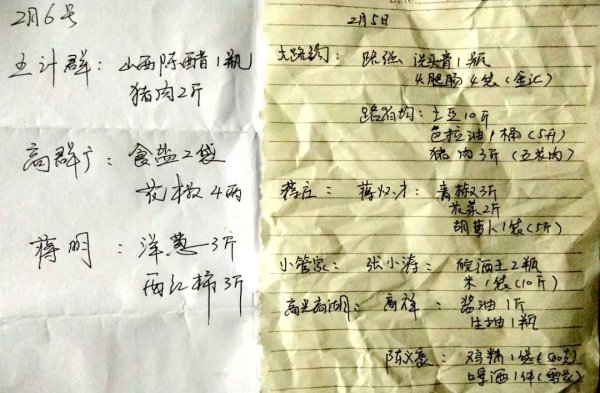 2月6号
王计群：山西陈醋1瓶
猪肉2斤
高群广：食盐2袋
花椒4两
蒋明：洋葱3斤
西红柿3斤
2月5日
大路沟：陈强 洗头膏1瓶
火腿肠4袋（金汇）
路有均：土豆10斤
色拉油1桶（5升）
猪肉3斤（五花肉）
蒋庄：蒋以才：青椒3斤
花菜2斤
胡萝卜1袋（5斤）
小管家：张小涛：皖酒王2瓶
米1袋（10斤）
高祥：酱油1斤
生抽1瓶
鸡精1袋（500克）
啤酒1件（雪花）